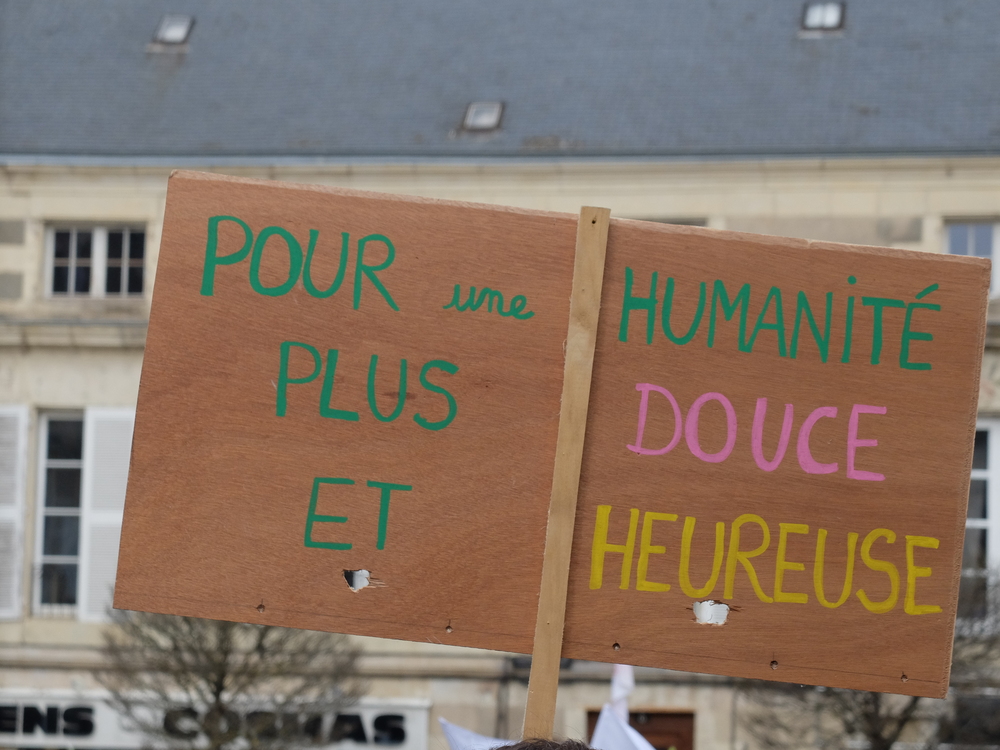 POUR une HUMANITÉ
PLUS DOUCE
ET HEUREUSE